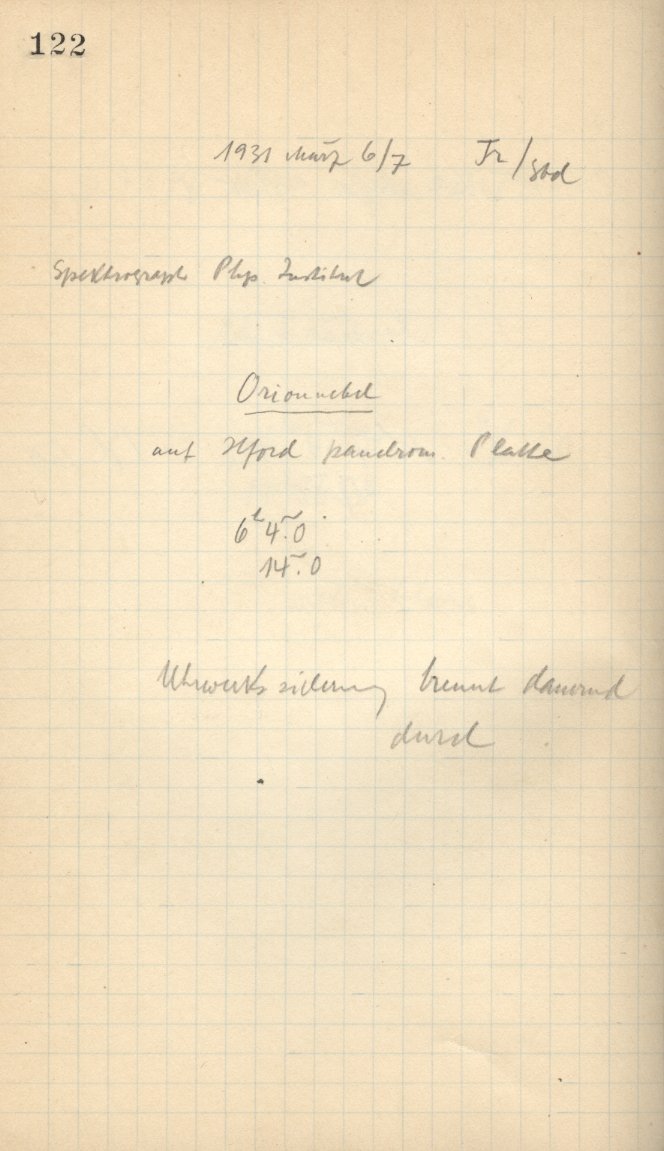 122
1931 März 6/7 Fr/Std
Spektrograph Phys. Institut
Orionnebel
auf Ilford panchrom. Platte
6ʰ 4ᵐ.0
14ᵐ.0
Uhrwerkssicherung brennt dauernd
durch